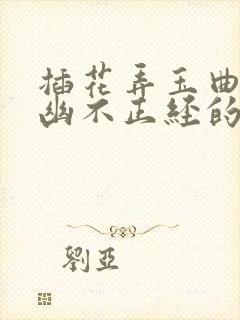 插花弄玉曲
幽不正经的
劉亞